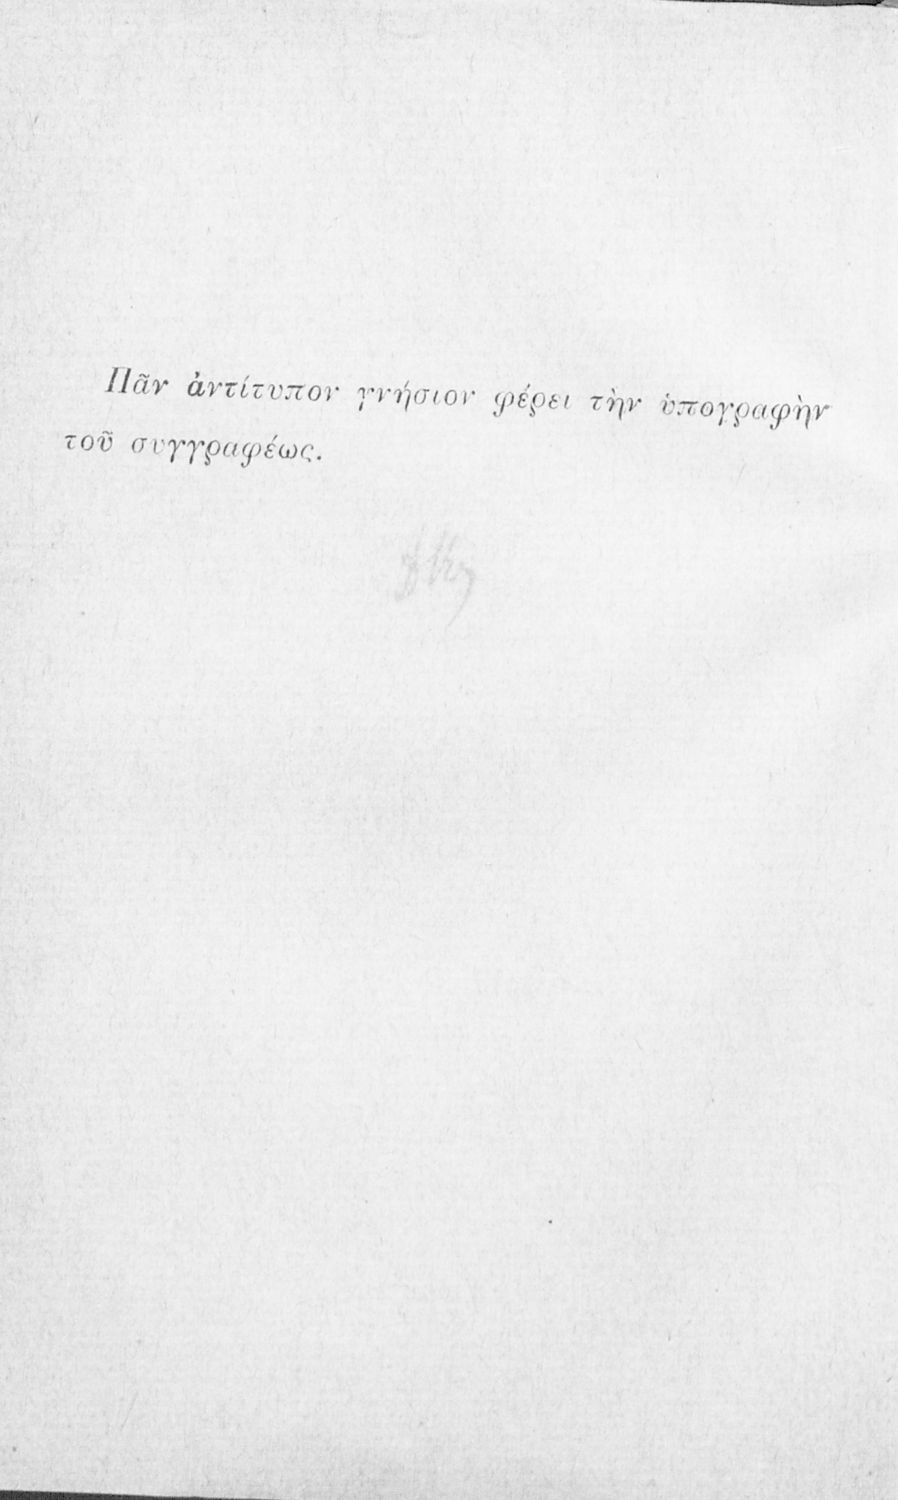 Πᾶν ἀντίτυπον γνήσιον φέρει τὴν ὑπογραφὴν
τοῦ συγγραφέως.